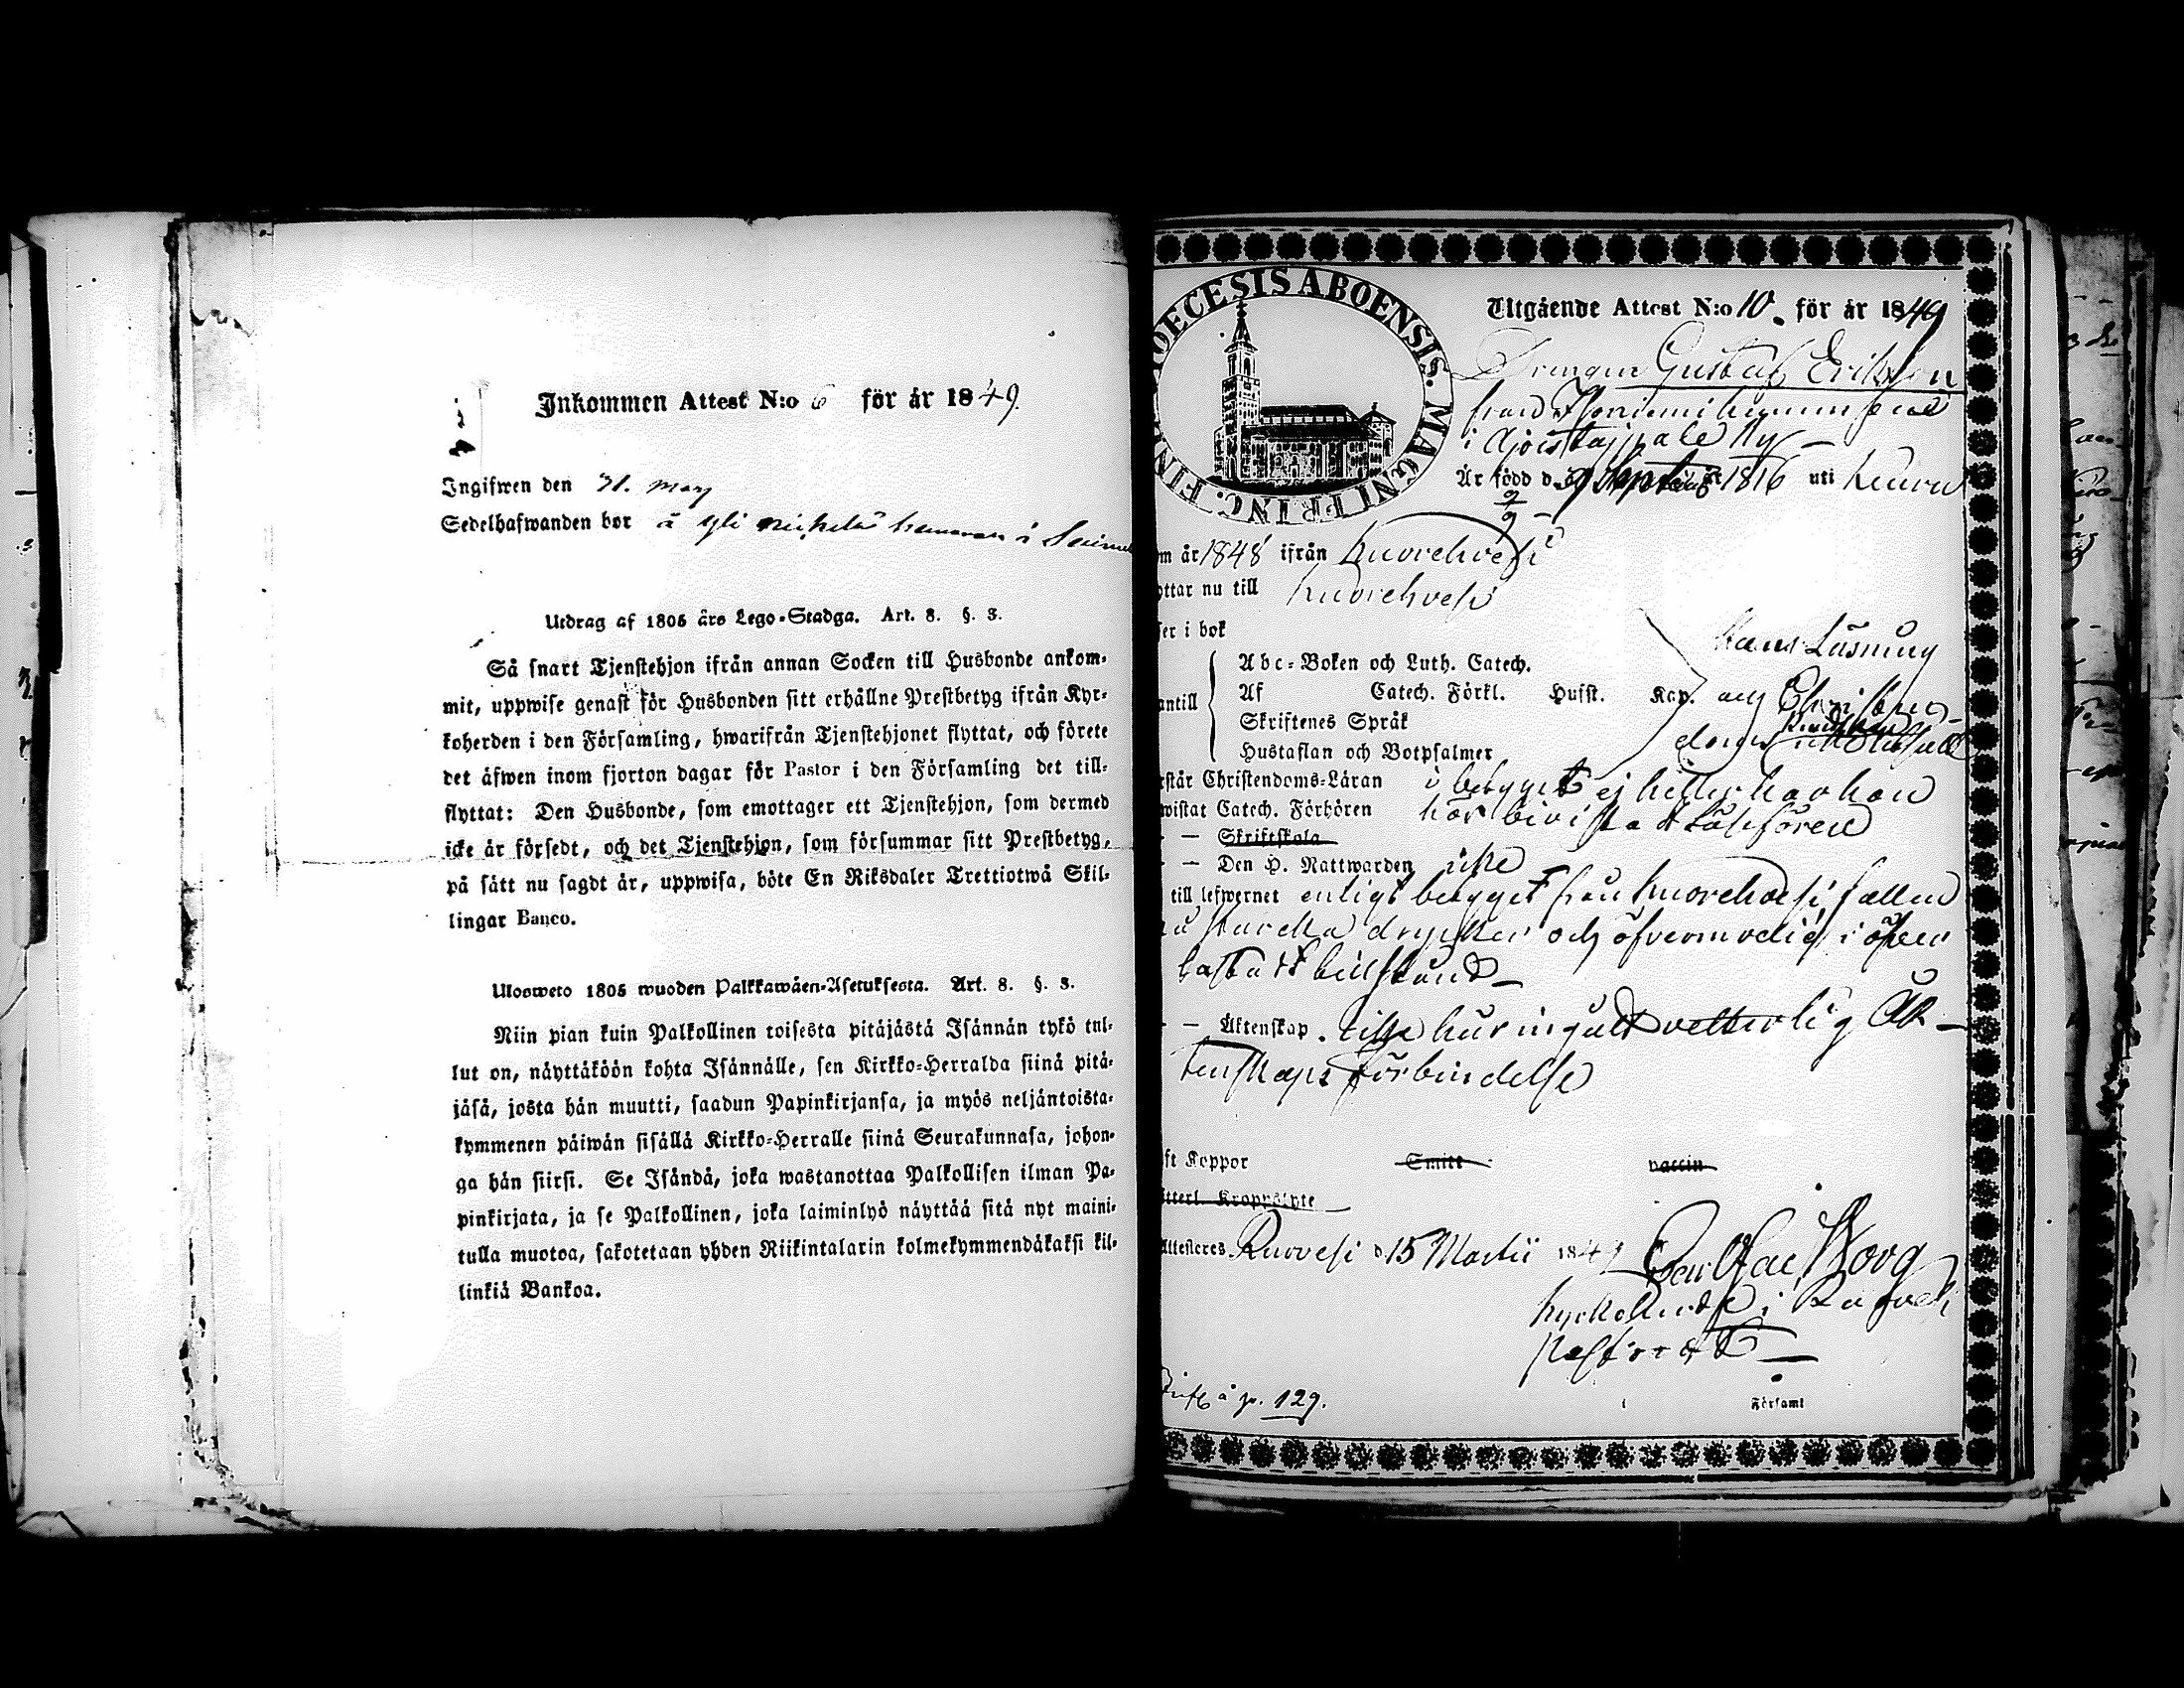 Inkommen Attest N:o 6 för år 1849.
Ingifwen den 31. may
Sedelhafwanden bor å Yli
Utdrag af 1805 års Lego-Stadga. Art. 8. §. 3.
Så snart Tjenstehjon ifrån annan Socken till Husbonde ankom-
mit, uppwise genast för Husbonden sitt erhållne Prestbetyg ifrån Kyr-
koherden i den Församling, hwarifrån Tjenstehjonet flyttat, och förete
det äfwen inom fjorton dagar för Pastor i den Församling det till-
flyttat: Den Husbonde, som emottager ett Tjenstehjon, som dermed
icke är försedt, och det Tjenstehjon, som försummar sitt Prestbetyg,
på sätt nu sagdt är, uppwisa, böte En Riksdaler Trettiotwå Skil-
lingar Banco.
Ulosweto 1805 wuoden Palkkawäen-Asetuksesta. Art. 8. §. 3.
Niin pian kuin Palkollinen toisesta pitäjästä Isännän tykö tul-
lut on, näyttäköön kohta Isännälle, sen Kirkko-Herralda siinä pitä-
jäsä, josta hän muutti, saadun Papinkirjansa, ja myös neljäntoista-
kymmenen päiwän sisällä Kirkko-Herralle siinä Seurakunnasa, johon-
ga hän siirsi. Se Isändä, joka wastanottaa Palkollisen ilman Pa-
pinkirjata, ja se Palkollinen, joka laiminlyö näyttää sitä nyt maini-
tulla muotoa, sakotetaan yhden Riikintalarin kolmekymmendäkaksi kil-
linkiä Bankoa.
DIOECESIS ABOENSIS. MAGNI PRINC. FINL
Utgående Attest N:o 10. för år 1849
Drengen Gustaf Erikson
från
i
Är född d 9 September 1816 uti Keuru
9/9
om år 1848 ifrån Kuorehvesi
ottar nu till Kuorehvesi
ser i bok
Abc-Boken och Luth. Catech.
antill Af Catech. Förkl. Husst. Kap.
Skriftenes Språk
Hustaflan och Botpsalmer
Hans Läsning
och Christen-
doms
rstår Christendoms-Läran i betyget ej heller har han
wistat Catech. Förhören här bivistat Läseförren
— — Skriftskola
— — Den H. Nattwarden icke
till lefwernet enligt betyget från Kuorehvesi fallen
starcka drycker och öfvermodig i öfver
lastadt tillstånd
— — Äktenskap. icke här ingådt Äk-
tenskaps förbindelse
ft Koppor Smitt vaccin
itterl. Kroppslyte
Attesteres Rurvesi d 15 Martii 1849
Kyrkoherde i Rurvesi
Pastorat
å p. 129.
i Församl